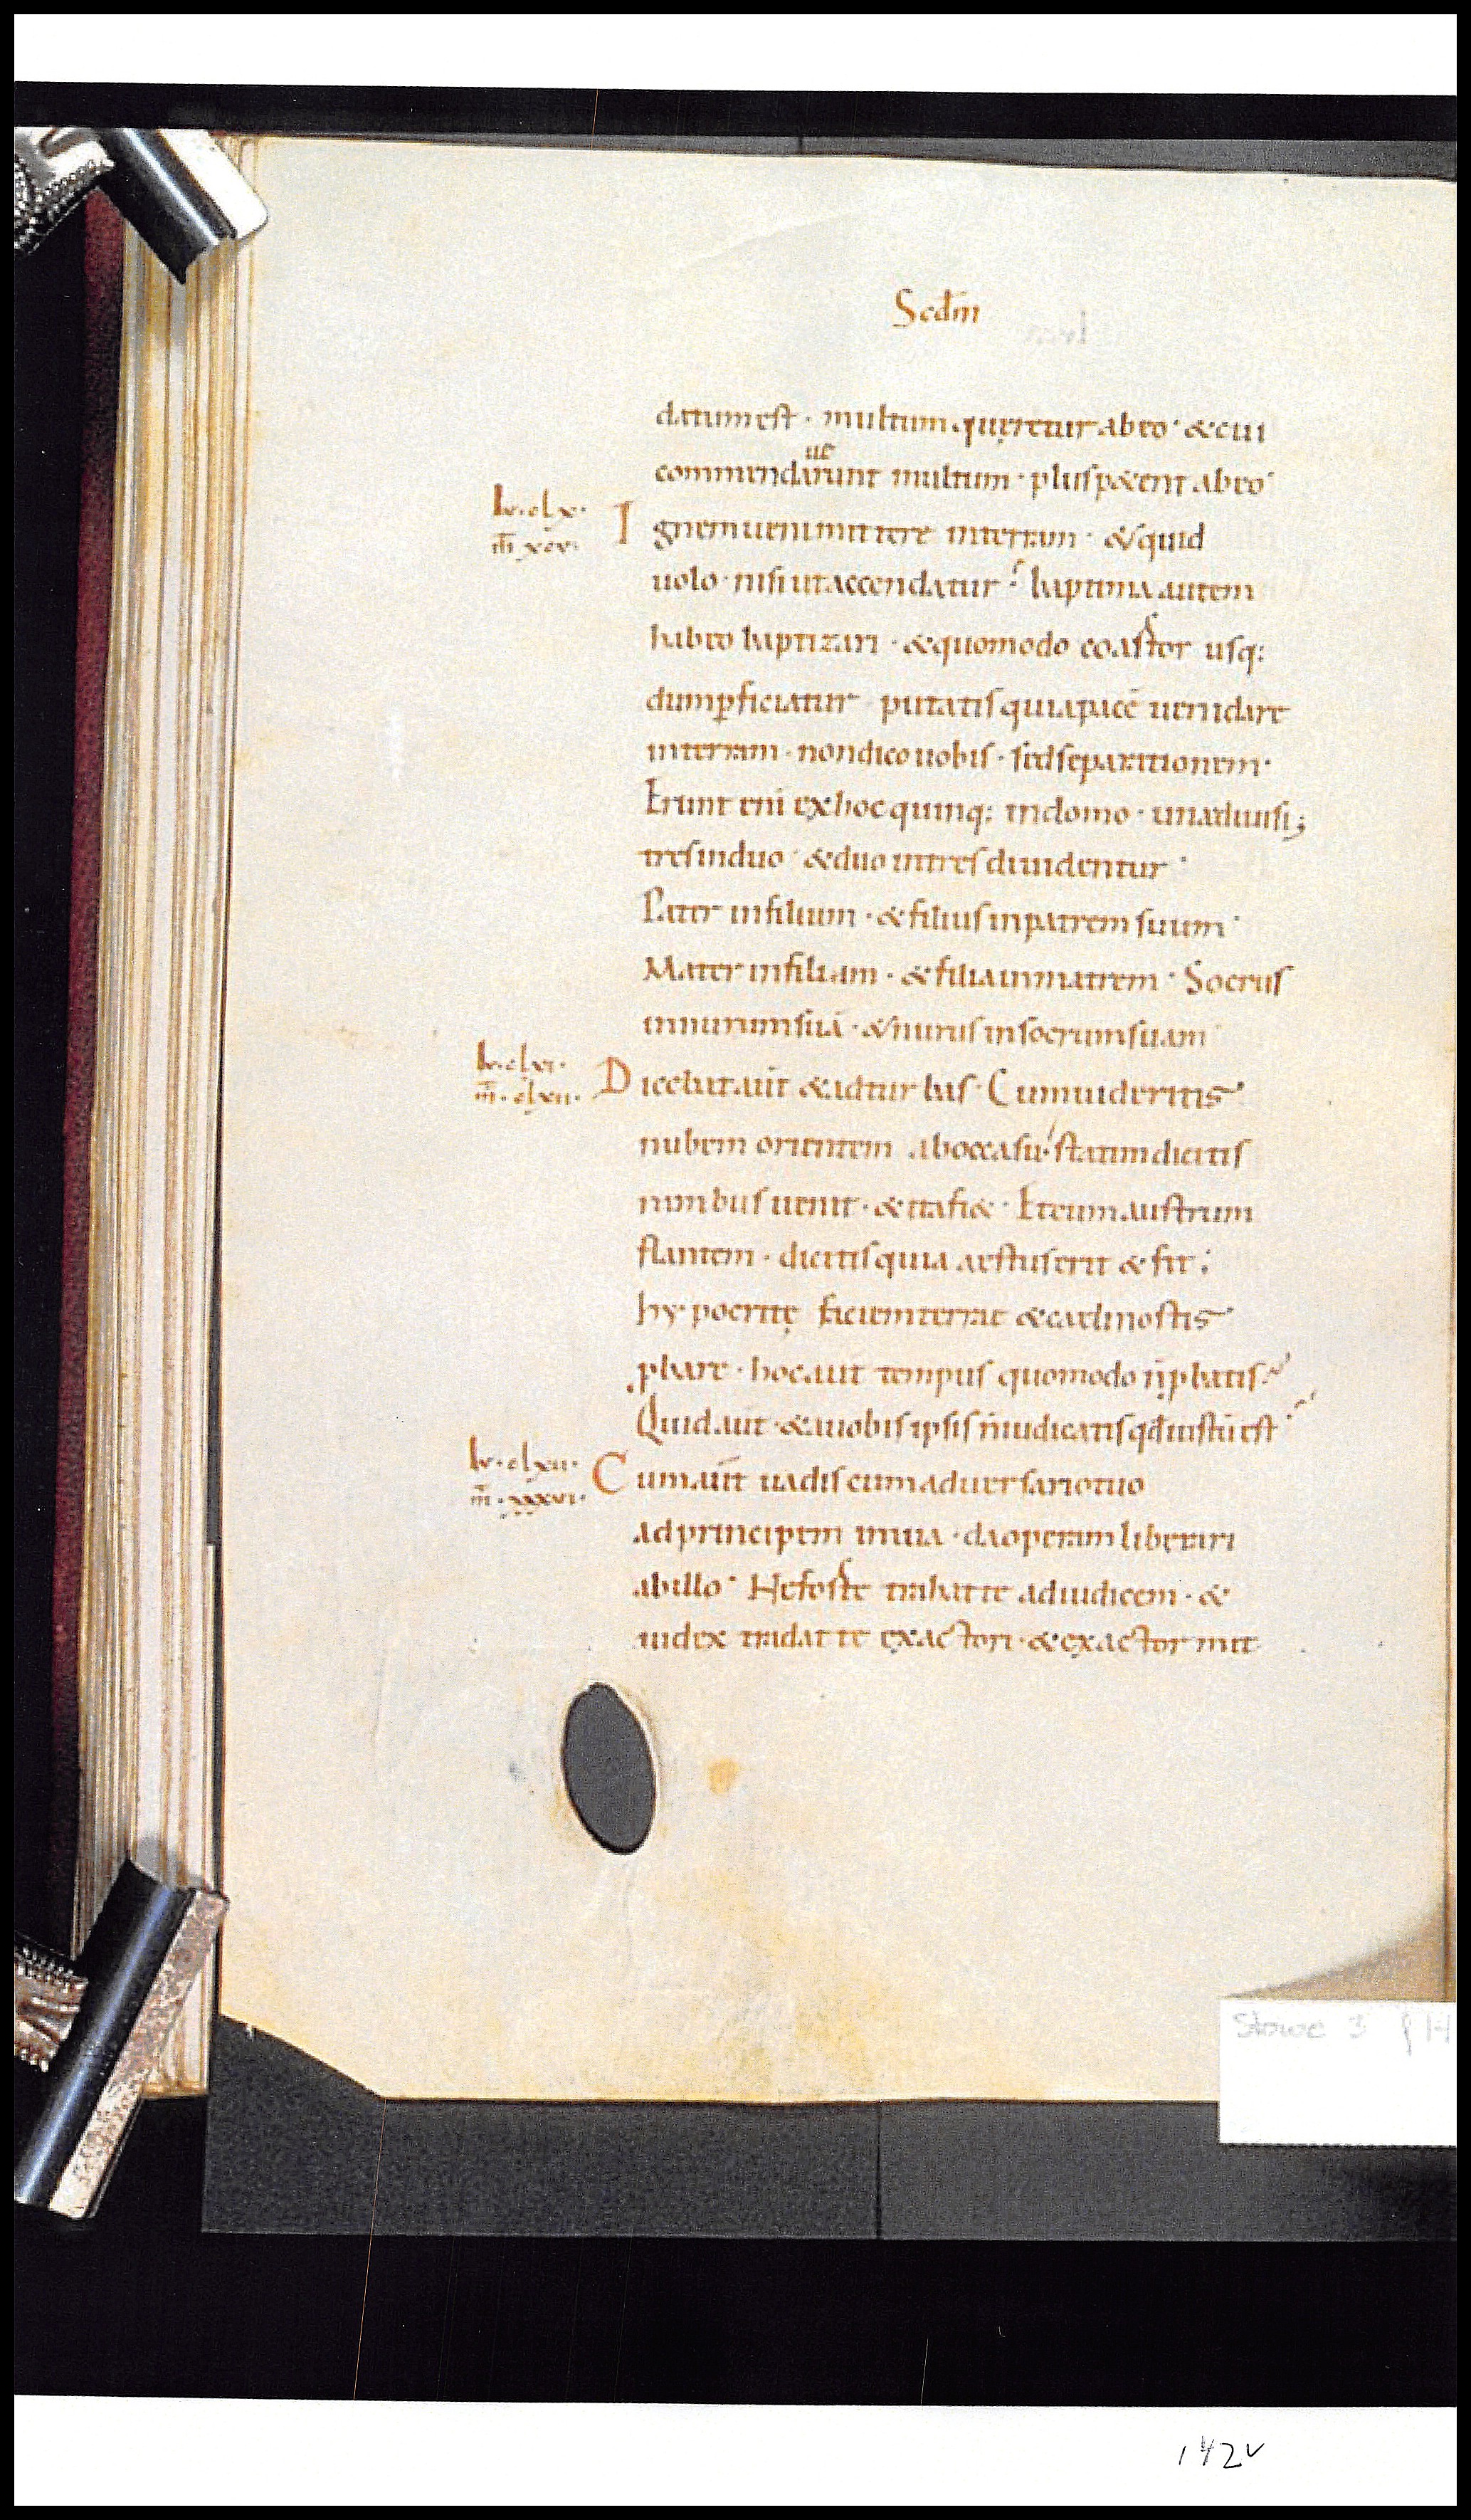 Scdm
datum est · multum quęretur ab eo · & cui
ue
commendarunt multum · plus p&ent ab eo ·
lv · clx ·
m̅ xcv ·
Ignem ueni mittere in terram · & quid
uolo · nisi ut accendatur · baptisma autem
habeo baptizari · & quomodo coastor usq;
dum ꝑficiatur putatis quia pacē ueni dare
in terram · non dico uobis · sed separationem ·
Erunt eni ex hoc quinq; in domo · una diuisi;
tres in duo · & duo in tres diuidentur ·
Pater in filium · & filius in patrem suum ·
Mater in filiam · & filia in matrem · Socrus
in nurum suā · & nurus in socrum suam
lv · clxi ·
m̅ · clxii ·
Dicebat aut̄ & ad turbas · Cum uideritis
nubem orientem ab occasu · statim dicitis
nimbus uenit · & ita fi& · Et cum austrum
flantem · dicitis quia aestus erit & fit ;
hypocritę faciem terrae & caeli nostis
ꝓbare · hoc aut̄ tempus quomodo n̄ ꝓbatis ·
Quid aut̄ · & a uobis ipsis n̄ iudicatis qd̄ iustū est
lv · clxii ·
m̅ · xxxvi ·
Cum aut̄ uadis cum aduersario tuo
ad principem in uia · da operam liberari
ab illo · Ne foste trahat te ad iudicem · &
iudex tradat te exactori · & exactor mit
Stowe 3 f 14
142v